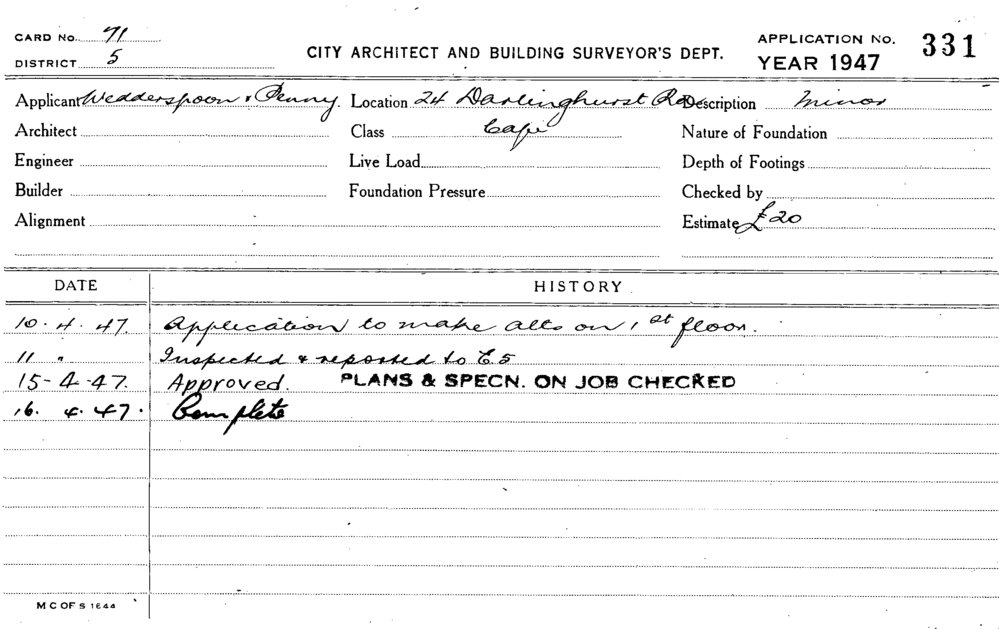 CARD No. 71
DISTRICT 5
CITY ARCHITECT AND BUILDING SURVEYOR'S DEPT.
APPLICATION No. 331
YEAR 1947
Applicant Wedderspoon & Penny. Location 24 Darlinghurst Rd Description Minor
Architect Class Cafe Nature of Foundation
Engineer Live Load Depth of Footings
Builder Foundation Pressure Checked by
Alignment Estimate £20
DATE HISTORY
10.4.47. Application to make alts on 1st floor.
11 " Inspected & reported to E.5
15-4-47. Approved. PLANS & SPECN. ON JOB CHECKED
16. 4. 47. Complete
M C OF S 1644